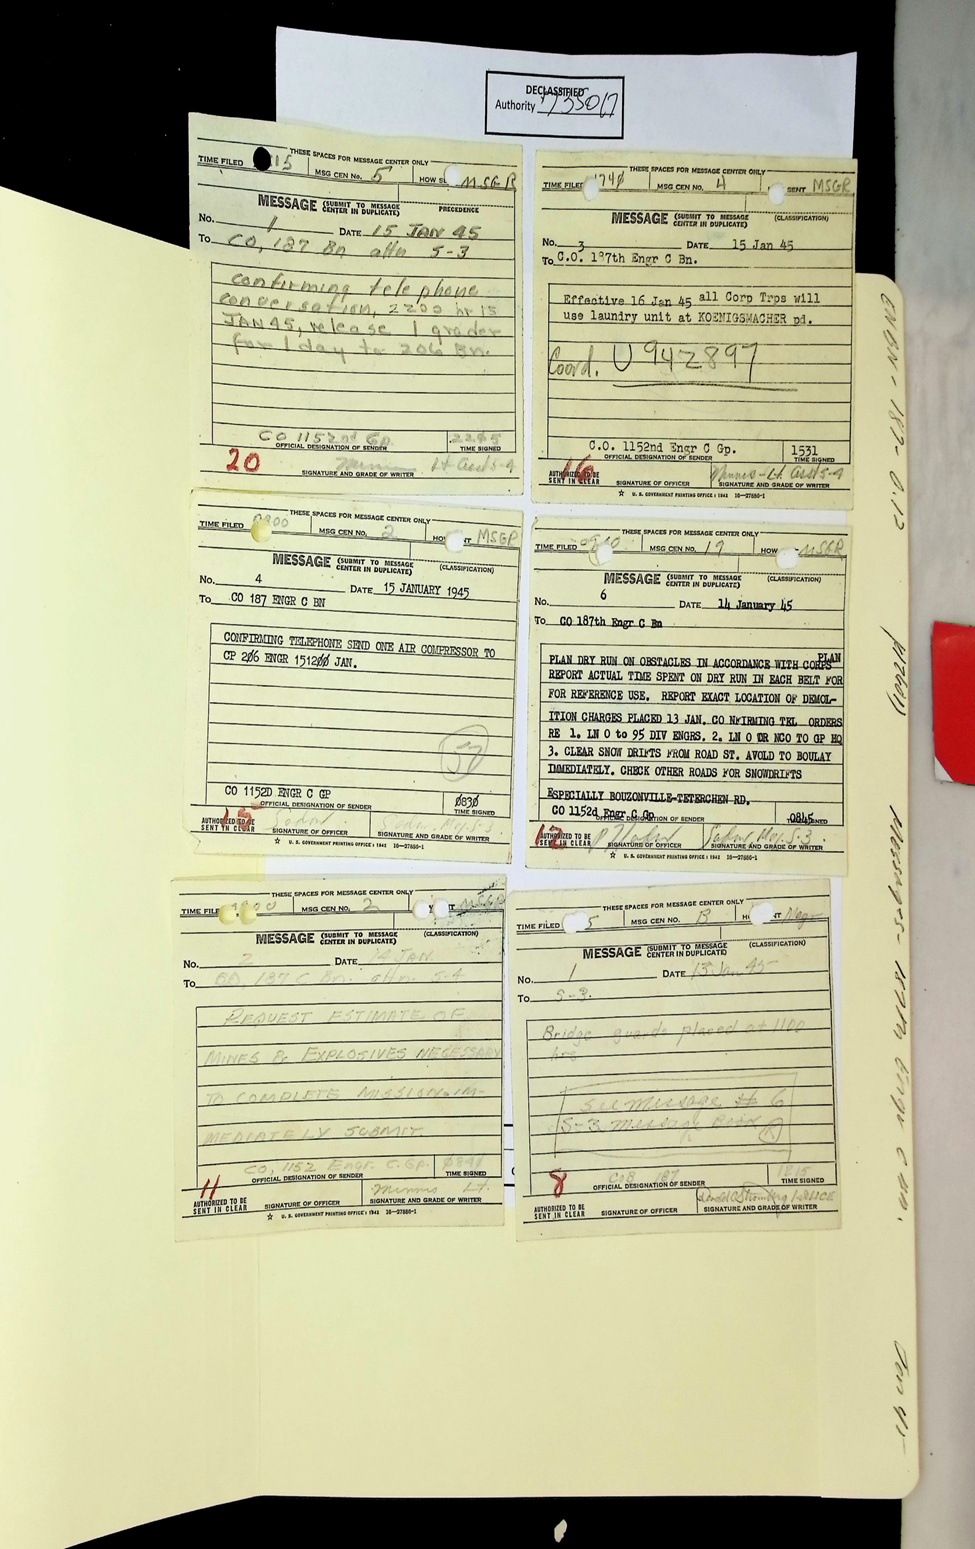 DECLASSIFIED
Authority 735017
THESE SPACES FOR MESSAGE CENTER ONLY
TIME FILED 15 MSG CEN No. 5 HOW SENT MSGR
MESSAGE (SUBMIT TO MESSAGE CENTER IN DUPLICATE) PRECEDENCE
No. 1 DATE 15 JAN 45
To CO, 187 Bn attn S-3
confirming telephone
conversation, 2200 hr 15
JAN 45, release 1 grader
for 1 day to 206 Bn.
CO 1152nd Gp. 2205
OFFICIAL DESIGNATION OF SENDER TIME SIGNED
20 Lt Asst S-4
SIGNATURE AND GRADE OF WRITER
THESE SPACES FOR MESSAGE CENTER ONLY
TIME FILED 1740 MSG CEN No. 4 SENT MSGR
MESSAGE (SUBMIT TO MESSAGE CENTER IN DUPLICATE) (CLASSIFICATION)
No. 3 DATE 15 Jan 45
To C.O. 187th Engr C Bn.
Effective 16 Jan 45 all Corp Trps will
use laundry unit at KOENIGSMACHER pd.
Coord. U 942897
C.O. 1152nd Engr C Gp. 1531
OFFICIAL DESIGNATION OF SENDER TIME SIGNED
16 Minnis-Lt Asst S-4
AUTHORIZED TO BE SENT IN CLEAR SIGNATURE OF OFFICER SIGNATURE AND GRADE OF WRITER
☆ U. S. GOVERNMENT PRINTING OFFICE : 1942 16-27880-1
THESE SPACES FOR MESSAGE CENTER ONLY
TIME FILED 0800 MSG CEN No. 2 MSGR
MESSAGE (SUBMIT TO MESSAGE CENTER IN DUPLICATE) (CLASSIFICATION)
No. 4 DATE 15 JANUARY 1945
To CO 187 ENGR C BN
CONFIRMING TELEPHONE SEND ONE AIR COMPRESSOR TO
CP 206 ENGR 151200 JAN.
CO 1152D ENGR C GP 0830
OFFICIAL DESIGNATION OF SENDER TIME SIGNED
15 Maj. S-3
AUTHORIZED TO BE SENT IN CLEAR SIGNATURE OF OFFICER SIGNATURE AND GRADE OF WRITER
☆ U. S. GOVERNMENT PRINTING OFFICE : 1942 16-27880-1
THESE SPACES FOR MESSAGE CENTER ONLY
TIME FILED MSG CEN No. 19 HOW MSGR
MESSAGE (SUBMIT TO MESSAGE CENTER IN DUPLICATE) (CLASSIFICATION)
No. 6 DATE 14 January 45
To CO 187th Engr C Bn
PLAN DRY RUN ON OBSTACLES IN ACCORDANCE WITH CORPS PLAN
REPORT ACTUAL TIME SPENT ON DRY RUN IN EACH BELT FOR
FOR REFERENCE USE. REPORT EXACT LOCATION OF DEMOL-
ITION CHARGES PLACED 13 JAN. CO NFIRMING TEL ORDERS
RE 1. LN O to 95 DIV ENGRS. 2. LN O OR NCO TO GP HQ
3. CLEAR SNOW DRIFTS FROM ROAD ST. AVOLD TO BOULAY
IMMEDIATELY. CHECK OTHER ROADS FOR SNOWDRIFTS
ESPECIALLY BOUZONVILLE-TETERCHEN RD.
CO 1152d Engr C Gp 0845
OFFICIAL DESIGNATION OF SENDER TIME SIGNED
12 Maj. S-3
AUTHORIZED TO BE SENT IN CLEAR SIGNATURE OF OFFICER SIGNATURE AND GRADE OF WRITER
☆ U. S. GOVERNMENT PRINTING OFFICE : 1942 16-27880-1
THESE SPACES FOR MESSAGE CENTER ONLY
TIME FILED MSG CEN No. 2 MSGR
MESSAGE (SUBMIT TO MESSAGE CENTER IN DUPLICATE) (CLASSIFICATION)
No. 2 DATE 14 JAN.
To CO, 187 C Bn. attn. S-4
REQUEST ESTIMATE OF
MINES & EXPLOSIVES NECESSARY
TO COMPLETE MISSION. IM-
MEDIATELY SUBMIT.
CO, 1152 Engr. C. Gp.
OFFICIAL DESIGNATION OF SENDER TIME SIGNED
11 Minnis Lt.
AUTHORIZED TO BE SENT IN CLEAR SIGNATURE OF OFFICER SIGNATURE AND GRADE OF WRITER
☆ U. S. GOVERNMENT PRINTING OFFICE : 1942 16-27880-1
THESE SPACES FOR MESSAGE CENTER ONLY
TIME FILED 5 MSG CEN No. B
MESSAGE (SUBMIT TO MESSAGE CENTER IN DUPLICATE) (CLASSIFICATION)
No. 1 DATE 13 Jan 45
To S-3.
Bridge guards placed at 1100
hrs
See message # 6
S-3 Message Book
8 187 1215
OFFICIAL DESIGNATION OF SENDER TIME SIGNED
AUTHORIZED TO BE SENT IN CLEAR SIGNATURE OF OFFICER SIGNATURE AND GRADE OF WRITER
ENBN-187-0.12
Messages- 187th Engr C Bn.
Jan 45